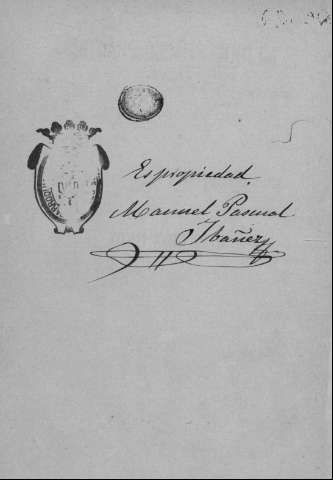 Es propiedad.
Manuel Pascual
Ibáñez